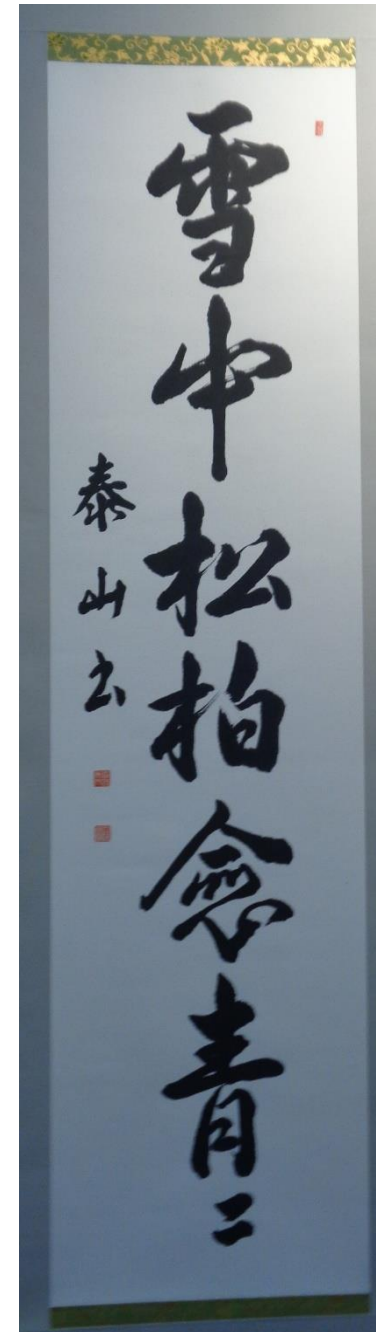 雪中松柏愈青〻
泰山書